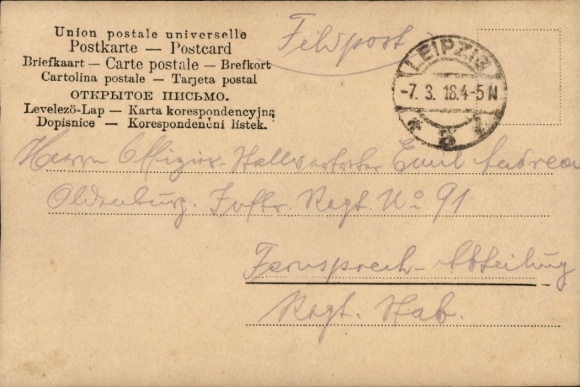 Union postale universelle
Postkarte — Postcard
Briefkaart — Carte postale — Brefkort
Cartolina postale — Tarjeta postal
ОТКРЫТОЕ ПИСЬМО.
Levelező-Lap — Karta korespondencyjna
Dopisnice — Korespondenční lístek.
Feldpost
LEIPZIG
-7. 3. 18. 4-5 N
* 2
Herrn Offizier-Stellvertreter Emil Andreae
Oldenburg. Inftr. Regt. No 91
Fernsprech-Abteilung
Regt. Stab.